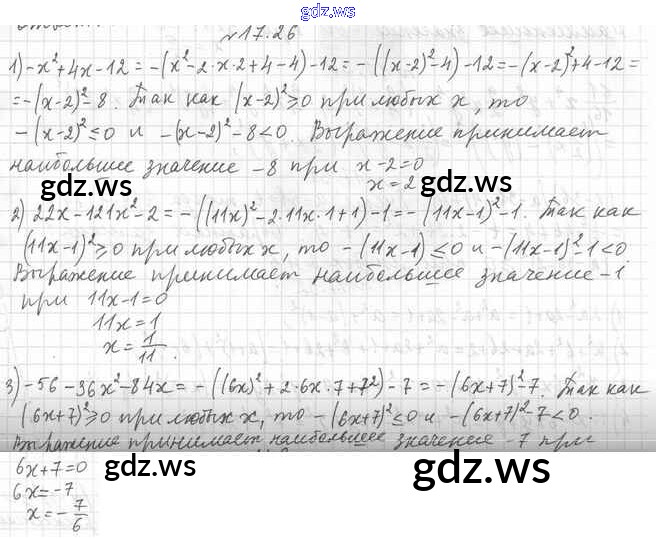 gdz.ws
№17.26
1) -x²+4x-12 = -(x²-2·x·2+4-4)-12 = -((x-2)²-4)-12 = -(x-2)²+4-12 =
= -(x-2)²-8. Так как (x-2)²≥0 при любых x, то
-(x-2)²≤0 и -(x-2)²-8<0. Выражение принимает
наибольшее значение -8 при x-2=0
x=2
gdz.ws gdz.ws
2) 22x-121x²-2 = -((11x)²-2·11x·1+1)-1 = -(11x-1)²-1. Так как
(11x-1)²≥0 при любых x, то -(11x-1)≤0 и -(11x-1)²-1<0.
Выражение принимает наибольшее значение -1
при 11x-1=0
11x=1
x=1/11.
gdz.ws gdz.ws
3) -56-36x²-84x = -((6x)²+2·6x·7+7²)-7 = -(6x+7)²-7. Так как
(6x+7)²≥0 при любых x, то -(6x+7)²≤0 и -(6x+7)²-7<0.
Выражение принимает наибольшее значение -7 при
6x+7=0
6x=-7
x=-7/6
gdz.ws gdz.ws
gdz.ws